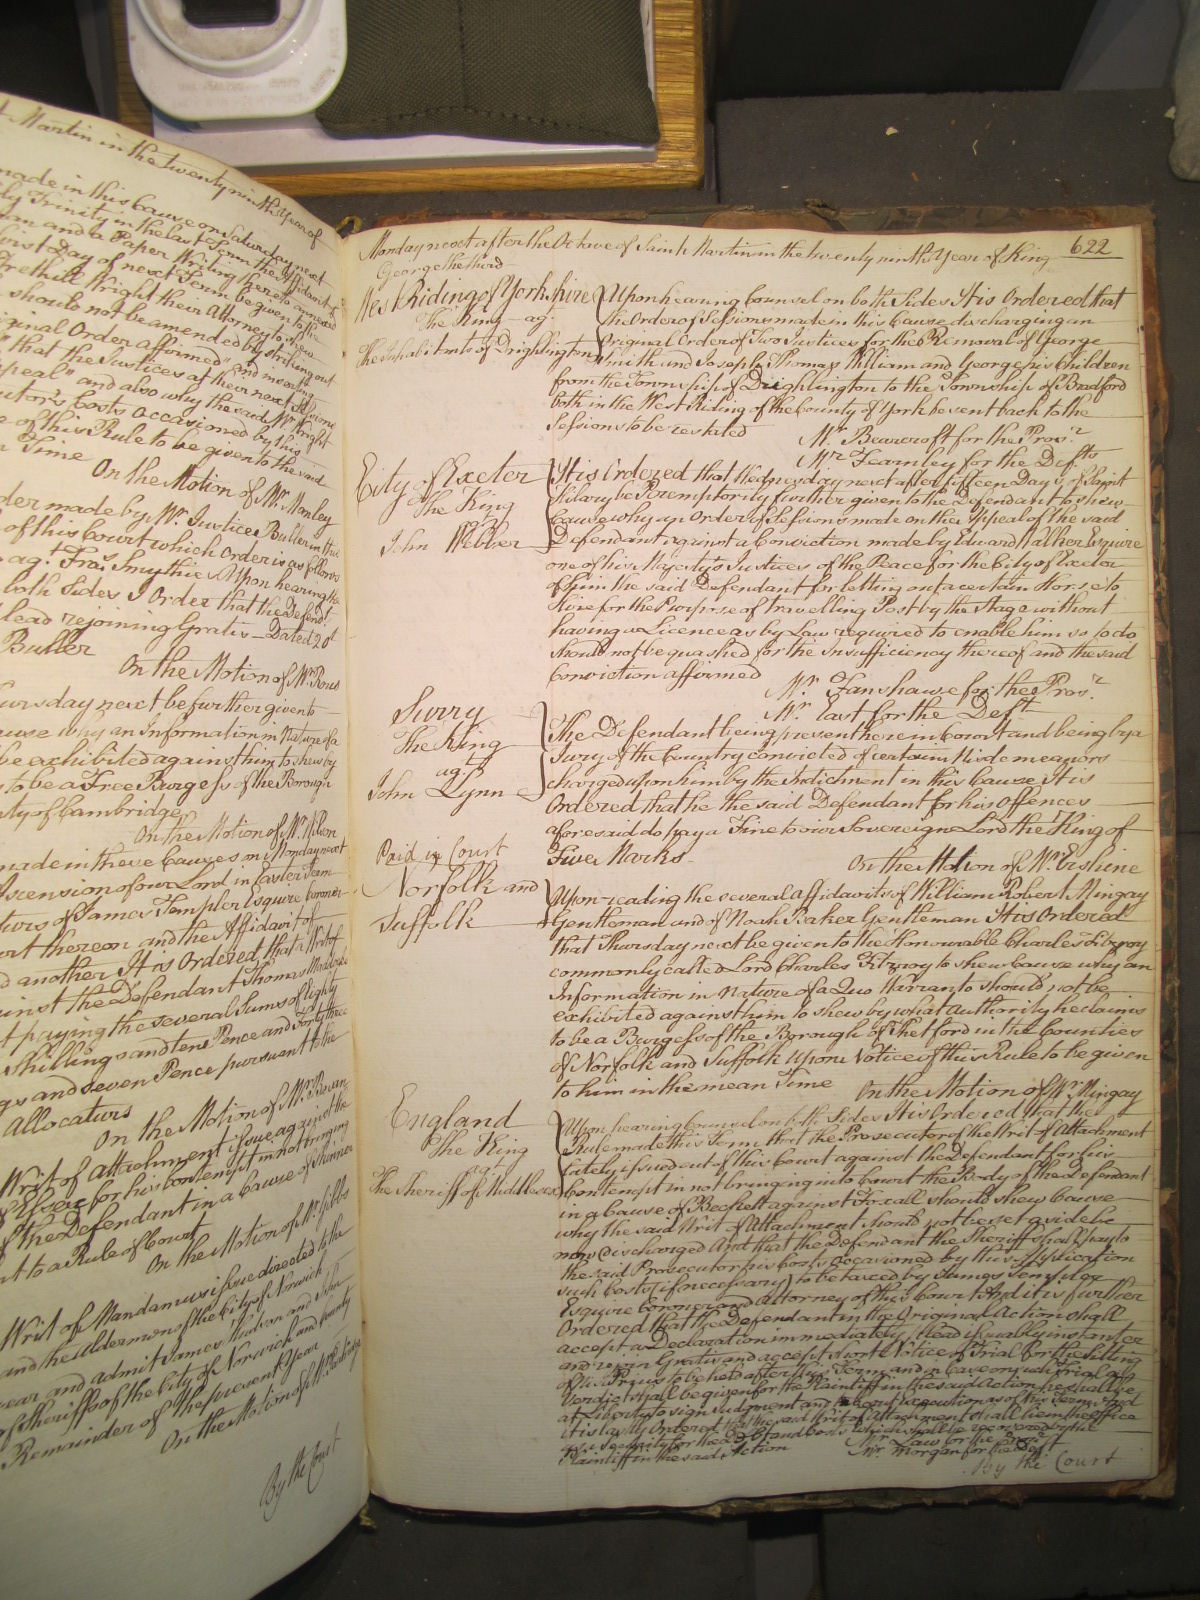 t Martin in the twenty ninth Year of
made in this Cause on Saturday next
ly Trinity in the last Term the Affidavit of
man and a Paper Writing thereto annexed
first Day of next Term be given to the
Wright their Attorney to shew
should not be amended by striking out
ginal Order affirmed" and inserting
"that the Justices at their next Sessions
peal" and also why the said Mr. Wright
cutor's Costs occasioned by this
e of this Rule to be given to the said
n Time
On the Motion of Mr. Manley
der made by Mr. Justice Buller in this
of this Court which Order is as follows
ag.t Fra.s Smythie Upon hearing the
both Sides I Order that the Defend.t
lead rejoining Gratis Dated 20th
Buller
On the Motion of Mr. Rous
ursday next be further given to
ause why an Information in Nature of a
be exhibited against him to shew by
to be a Free Burgess of the Borough
nty of Cambridge
On the Motion of Mr. Wilson
made in these Causes on Monday next
Ascension of our Lord in Easter Term
turs of James Templer Esquire Coroner
urt thereon and the Affidavit of
d another It is Ordered that a Writ of
ainst the Defendant Thomas
t paying the several Sums of Eighty
Shillings and ten Pence and Forty three
gs and seven Pence pursuant to the
Allocaturs
On the Motion of Mr. Bower
Writ of Attachment issue against the
Essex for his Contempt in not bringing
of the Defendant in a Cause of Skinner
nt to a Rule of Court
On the Motion of Mr. Gibbs
Writ of Mandamus issue directed to the
and the Aldermen of the City of Norwich
wear and admit James Hudson and John
of Sheriffs of the City of Norwich and County
Remainder of the present Year
On the Motion of Mr. Partridge
By the Court
622
Monday next after the Octave of Saint Martin in the twenty ninth Year of King
George the third
West Riding of Yorkshire
The King ag.
The Inhabitants of Drighlington
Upon hearing Counsel on both Sides It is Ordered that
the Order of Sessions made in this Cause discharging an
Original Order of Two Justices for the Removal of George
Smith and Joseph Thomas William and George his Children
from the Township of Drighlington to the Township of Bradford
both in the West Riding of the County of York be sent back to the
Sessions to be restated
Mr. Bearcroft for the Pros.r
Mr. Fearnley for the Def.ts
City of Exeter
The King
John Webber
It is Ordered that Wednesday next after fifteen Days of Saint
Hilary be Peremptorily further given to the Defendant to shew
Cause why an Order of Sessions made on the Appeal of the said
Defendant against a Conviction made by Edward Walker Esquire
one of his Majesty's Justices of the Peace for the City of Exeter
of him the said Defendant for letting out a certain Horse to
Hire for the Purpose of travelling Post by the Stage without
having a Licence as by Law required to enable him so to do
should not be quashed for the Insufficiency thereof and the said
Conviction affirmed
Mr. Fanshawe for the Pros.r
Mr. East for the Def.t
Surry
The King
ag.t
John Lynn
The Defendant being present here in Court and being by a
Jury of the Country convicted of certain Misdemeanors
charged upon him by the Indictment in this Cause It is
Ordered that he the said Defendant for his Offences
aforesaid do pay a Fine to our Sovereign Lord the King of
Five Marks
Paid in Court
On the Motion of Mr. Erskine
Norfolk and
Suffolk
Upon reading the several Affidavits of William Robert Mingay
Gentleman and of Noah Baker Gentleman It is Ordered
that Thursday next be given to the Honourable Charles Fitzroy
commonly called Lord Charles Fitzroy to shew Cause why an
Information in Nature of a Quo Warranto should not be
exhibited against him to shew by what Authority he claims
to be a Burgess of the Borough of Thetford in the Counties
of Norfolk and Suffolk Upon Notice of this Rule to be given
to him in the mean Time
On the Motion of Mr. Mingay
England
The King
agt
The Sheriff of Middlesex
Upon hearing Counsel on both Sides It is Ordered that the
Rule made this Term that the Prosecutor of the Writ of Attachment
lately issued out of this Court against the Defendant for his
Contempt in not bringing into Court the Body of the Defendant
in a Cause of Beckett against Forcall should shew Cause
why the said Writ of Attachment should not be set aside be
now discharged And that the Defendant the Sheriff shall pay to
the said Prosecutor his Costs occasioned by this Application
such Costs (if necessary) to be taxed by James Templer
Esquire Coroner and Attorney of this Court And it is further
Ordered that the Defendant in the Original Action shall
accept a Declaration immediately plead issuably instanter
and rejoin Gratis and accept short Notice of Trial for the Sitting
of Nisi Prius to be held after this Term and in case on such Trial a
Verdict shall be given for the Plaintiff in the said Action he shall be
at Liberty to sign Judgment and take out Execution as of this Term And
it is lastly Ordered that the said Writ of Attachment shall lie in the Office
as a Security for the Debt and Costs which shall be recovered by the
Plaintiff in the said Action
Mr. Law for the Pros.r
Mr. Morgan for the Def.t
By the Court